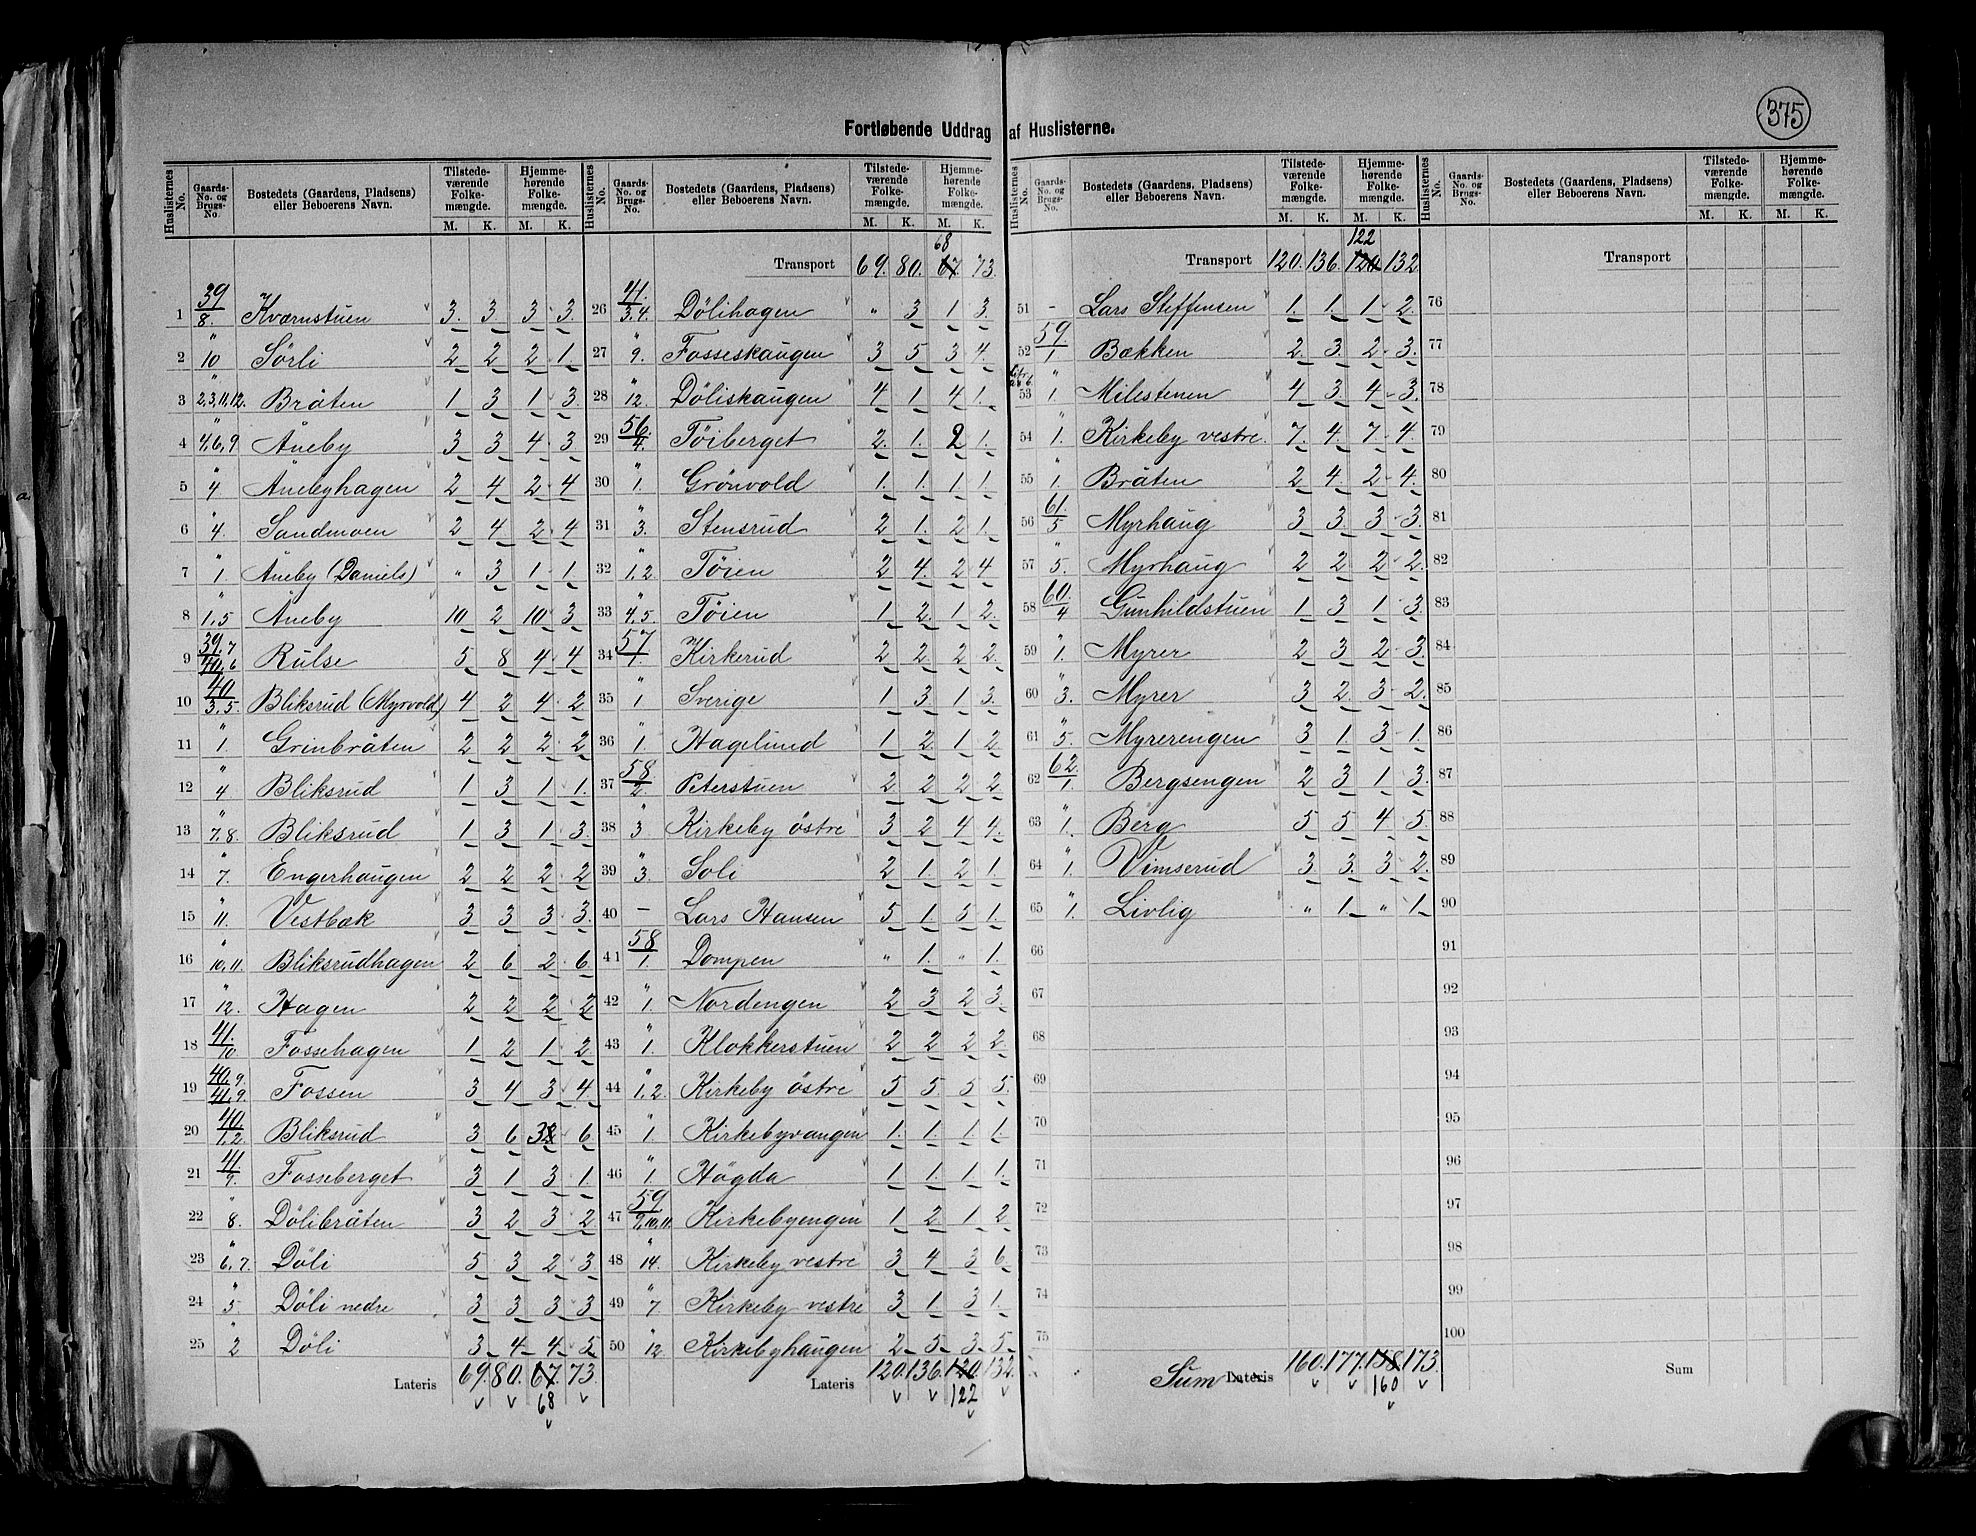 375
Fortløbende Uddrag af Huslisterne.
Huslisternes No. | Gaards-No. og Brugs-No. | Bostedets (Gaardens, Pladsen) eller Beboerens Navn. | Tilstedeværende Folkemængde. M. K. | Hjemmehørende Folkemængde. M. K.
1 39/8. Kværnstuen 3. 3. 3. 3.
2 " 10 Sörli 2 2 2 1
3 " 2,3,11,12. Bråten 1 3 1 3.
4 " 4,6,9 Åneby 3 3 4 3
5 " 4 Ånebyhagen 2 4 2 4
6 " 4. Sandmoen 2 4 2 4
7 " 1. Åneby (Daniels) " 3 1 1
8 " 1,5 Åneby 10 2 10 3
9 39,7 40,6 Rulse 5 8 4 4
10 40/3,5. Bliksrud (Myrvold) 4 2 4 2
11 " 1. Grinbråten 2 2 2 2
12 " 4 Bliksrud 1 3 1 1.
13 " 7,8. Bliksrud 1 3 1 3.
14 " 7. Engerhaugen 2 2 2 2
15 " 11. Vestbæk 3 3 3 3.
16 " 10,11. Bliksrudhagen 2 6 2 6
17 " 12. Hagen 2 2 2 2
18 41./10 Fossehagen 1 2 1 2
19 40,9. 41,9. Fossen 3 4 3 4
20 40./1,2. Bliksrud 3 6 3 6
21 41/9. Fosseberget 3 1 3 1
22 " 8. Dölibråten 3 2 3 2
23 " 6,7. Döli 5 3 2 3
24 " 5 Döli nedre 3 3 3 3
25 " 2 Döli 3 4 4 5
Lateris 69. 80. 67. 73.
68
Huslisternes No. | Gaards-No. og Brugs-No. | Bostedets (Gaardens, Pladsen) eller Beboerens Navn. | Tilstedeværende Folkemængde. M. K. | Hjemmehørende Folkemængde. M. K.
68
Transport 69. 80. 67. 73.
26 41./3,4. Dölihagen " 3 1 3.
27 " 9. Fosseskaugen 3 5 3 4.
28 " 12. Döliskaugen 4 1 4 1.
29 56/4. Töiberget 2. 1. 2 1.
30 " 1. Grönvold 1. 1. 1. 1.
31 " 3. Stensrud 2 1. 2 1.
32 " 1,2. Töien 2 4. 2 4
33 " 4,5 Töien 1 2. 1 2.
34 57/1. Kirkerud 2 2. 2 2.
35 " 1 Sverige 1 3 1 3.
36 " 1. Hagelund 1 2 1 2
37 58/2. Peterstuen 2 2 2 2
38 " 3 Kirkeby östre 3 2 4 4.
39 " 3. Soli 2 1. 2 1.
40 — Lars Hansen 5 1 5 1.
41 58/1. Dompen " 1. " 1.
42 " 1 Nordengen 2 3 2 3.
43 " 1. Klokkerstuen 2 2 2 2.
44 " 1,2. Kirkeby östre 5 5 5 5.
45 " 1. Kirkebyvangen 1. 1. 1 1.
46 " 1 Högda 1 1. 1 1.
47 59/9,10,11. Kirkebyengen 1 2 1 2
48 " 14. Kirkeby vestre 3 4 3 6
49 " 7. Kirkeby vestre 3 1 3 1.
50 " 12. Kirkebyhaugen 2 5 3 5.
Lateris 120. 136. 120. 132.
122
Huslisternes No. | Gaards-No. og Brugs-No. | Bostedets (Gaardens, Pladsen) eller Beboerens Navn. | Tilstedeværende Folkemængde. M. K. | Hjemmehørende Folkemængde. M. K.
122
Transport 120. 136. 120 132
51 – Lars Steffensen 1. 1. 1 2.
52 59./1. Bækken 2. 3. 2 3.
53 " 1. Milestenen 4 3. 4 3.
54 " 1. Kirkeby vestre. 7. 4. 7 4.
55 " 1. Bråten 2 4. 2 4.
56 61./5 Myrhaug 3 3. 3 3.
57 " 5. Myrhaug 2 2 2 2.
58 60./4 Gunhildstuen 1 3 1 3.
59 " 1. Myrer 2 3 2 3.
60 " 3. Myrer 3 2. 3 2.
61 " 5. Myrerengen 3 1 3 1.
62 62./1. Bergsengen 2 3 1 3.
63 " 1. Berg 5 5 4 5.
64 " 1. Vimserud 3 3. 3 2.
65 " 1. Livlig " 1. " 1.
66
67
68
69
70
71
72
73
74
75
Sum Lateris 160. 177. 158. 173.
160
Huslisternes No. | Gaards-No. og Brugs-No. | Bostedets (Gaardens, Pladsen) eller Beboerens Navn. | Tilstedeværende Folkemængde. M. K. | Hjemmehørende Folkemængde. M. K.
Transport
76
77
78
79
80
81
82
83
84
85
86
87
88
89
90
91
92
93
94
95
96
97
98
99
100
Sum